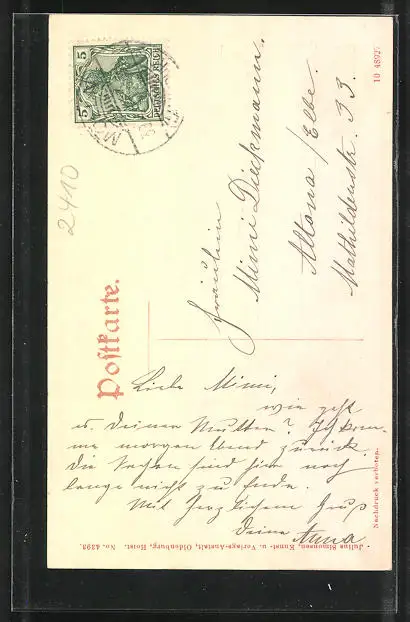 Postkarte.
Fräulein
Mimi Dieckmann.
Altona / Elbe.
Mathildenstr. 33.
Liebe Mimi,
wie geht
es Deiner Mutter? Ich kom-
me morgen Abend zurück
die Sachen sind hier noch
lange nicht zu Ende.
Mit herzlichem Gruß
Deine Anna
5
5
DEUTSCHES REICH
2410
10 4892.
Nachdruck verboten.
Julius Simonsen, Kunst- u. Verlags-Anstalt, Oldenburg, Holst. No. 4393.